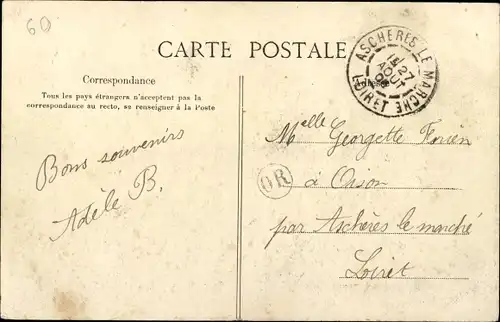 60
CARTE POSTALE
ASCHÈRES LE MARCHÉ
27
AOUT
LOIRET
Correspondance
Tous les pays étrangers n'acceptent pas la
correspondance au recto, se renseigner à la Poste
Bons souvenirs
Adèle B.
Melle Georgette
OR
à Oison
par Aschères le marché
Loiret